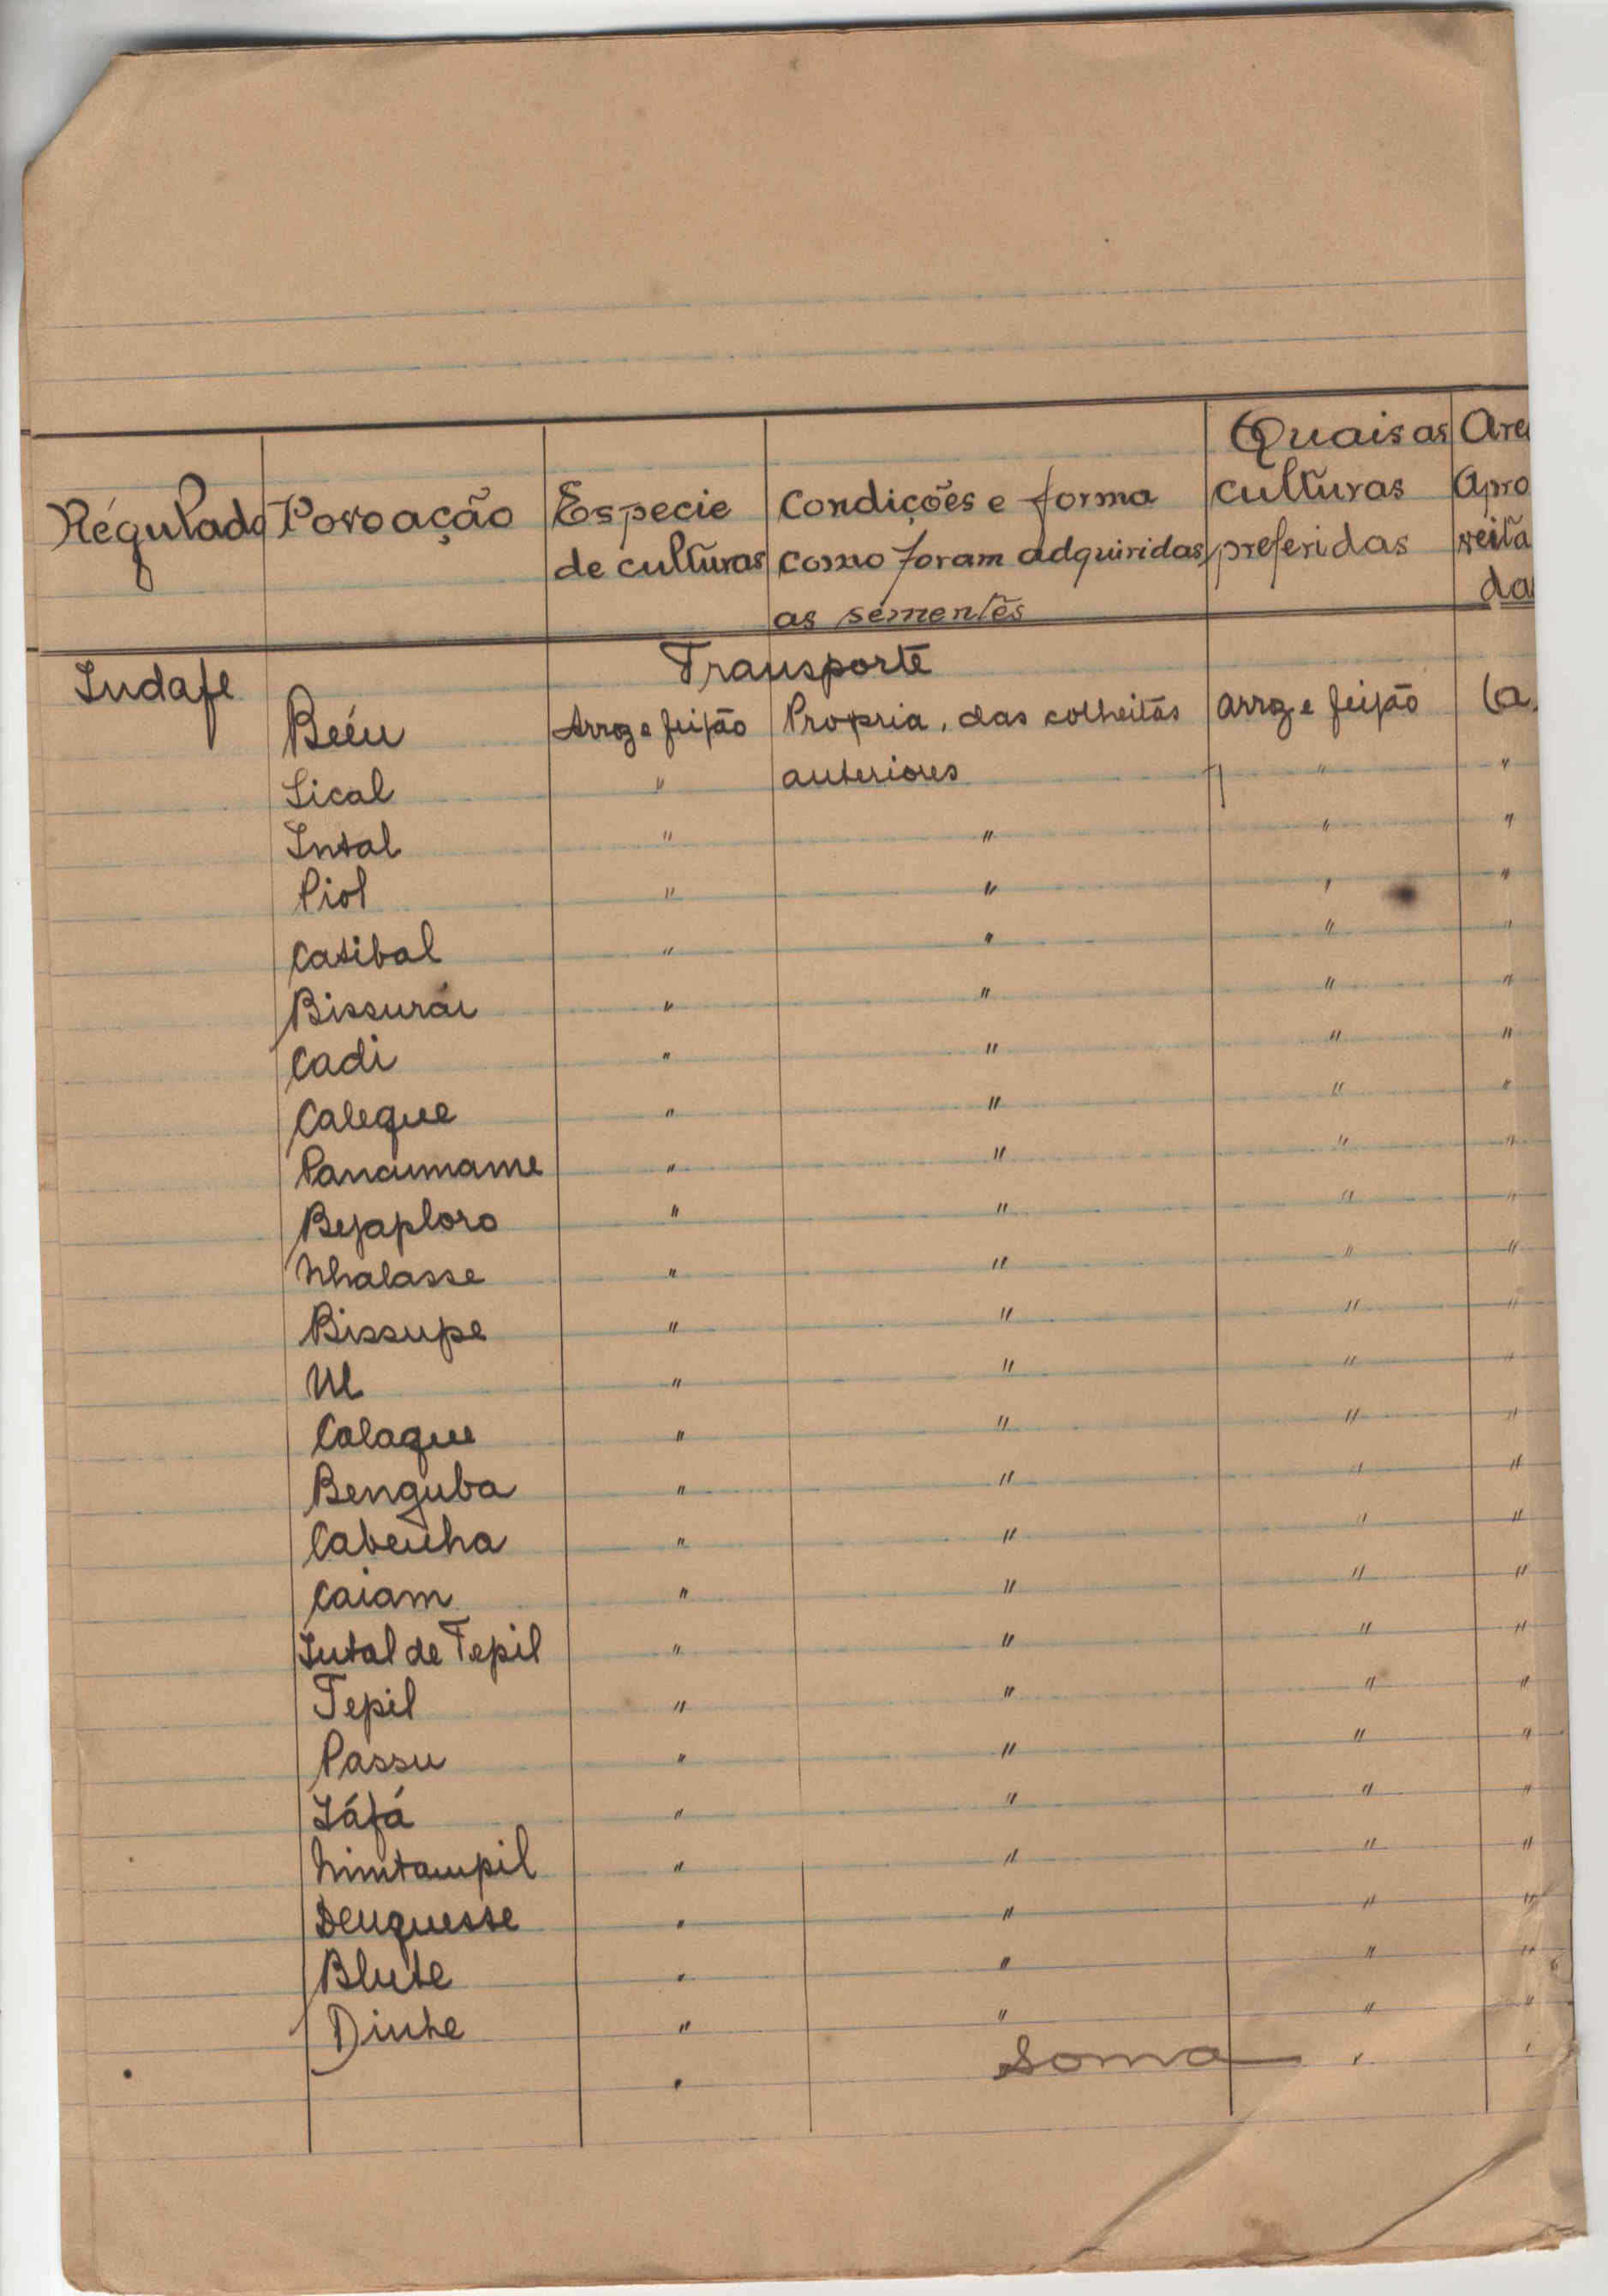 Régulado Povoação Especie de culturas Condições e forma como foram adquiridas as sementes Quais as culturas preferidas Area Apro veita da
Indafe Transporte
Beéu Arroz e feijão Propria, das colheitas Arroz e feijão (a.
Sical " anteriores " "
Intal " " " "
Piol " " " "
Catibal " " " "
Bissurái " " " "
Cadi " " " "
Caleque " " " "
Panaumame " " " "
Bejaploro " " " "
Nhalasse " " " "
Bissupe " " " "
Ul " " " "
Calaque " " " "
Benguba " " " "
Cabenha " " " "
Caiam " " " "
Intal de Tepil " " " "
Tepil " " " "
Passu " " " "
Iáfá " " " "
Nimtampil " " " "
Denguesse " " " "
Blute " " " "
Dinhe " " " "
" Soma " "